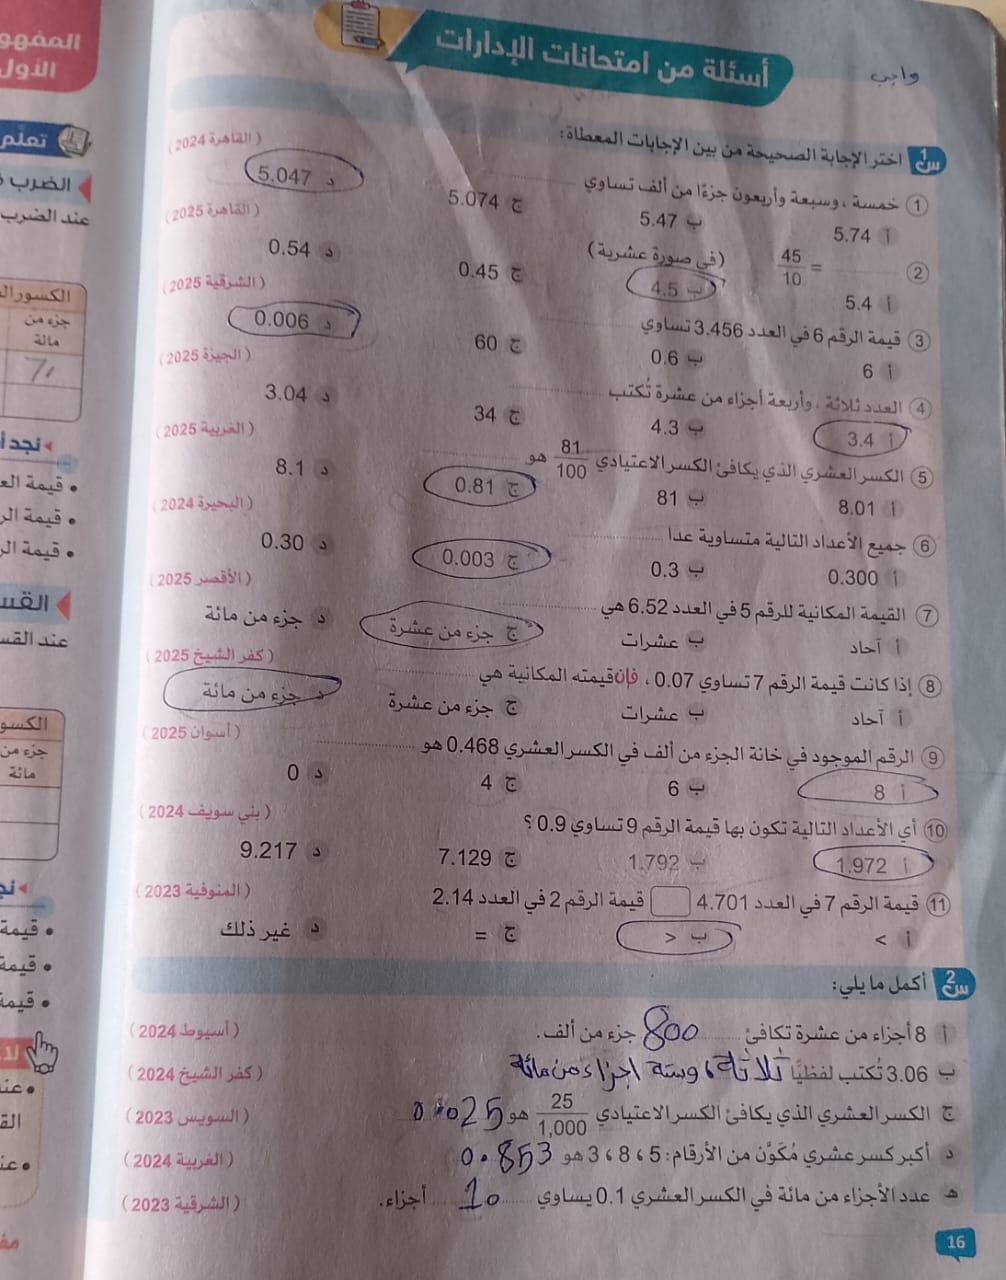 واجب
أسئلة من امتحانات الإدارات
المفهو
الأول
س1 اختر الإجابة الصحيحة من بين الإجابات المعطاة:
1 خمسة ، وسبعة وأربعون جزءًا من ألف تساوي ............ (القاهرة 2024)
أ 5.74 ب 5.47 ج 5.074 د 5.047
2 ............ = 45/10 (في صورة عشرية) (القاهرة 2025)
أ 5.4 ب 4.5 ج 0.45 د 0.54
3 قيمة الرقم 6 في العدد 3.456 تساوي ............ (الشرقية 2025)
أ 6 ب 0.6 ج 60 د 0.006
4 العدد ثلاثة ، وأربعة أجزاء من عشرة تُكتب ............ (الجيزة 2025)
أ 3.4 ب 4.3 ج 34 د 3.04
5 الكسر العشري الذي يكافئ الكسر الاعتيادي 81/100 هو ............ (الغربية 2025)
أ 8.01 ب 81 ج 0.81 د 8.1
6 جميع الأعداد التالية متساوية عدا ............ (البحيرة 2024)
أ 0.300 ب 0.3 ج 0.003 د 0.30
7 القيمة المكانية للرقم 5 في العدد 6.52 هي ............ (الأقصر 2025)
أ آحاد ب عشرات ج جزء من عشرة د جزء من مائة
8 إذا كانت قيمة الرقم 7 تساوي 0.07 ، فإن قيمته المكانية هي ............ (كفر الشيخ 2025)
أ آحاد ب عشرات ج جزء من عشرة د جزء من مائة
9 الرقم الموجود في خانة الجزء من ألف في الكسر العشري 0.468 هو ............ (أسوان 2025)
أ 8 ب 6 ج 4 د 0
10 أي الأعداد التالية تكون بها قيمة الرقم 9 تساوي 0.9 ؟ (بني سويف 2024)
أ 1.972 ب 1.792 ج 7.129 د 9.217
11 قيمة الرقم 7 في العدد 4.701 قيمة الرقم 2 في العدد 2.14 (المنوفية 2023)
أ > ب < ج = د غير ذلك
س2 أكمل ما يلي:
أ 8 أجزاء من عشرة تكافئ 800 جزء من ألف. (أسيوط 2024)
ب 3.06 تُكتب لفظيًّا ثلاثة، وستة اجزاء من مائة (كفر الشيخ 2024)
ج الكسر العشري الذي يكافئ الكسر الاعتيادي 25/1,000 هو 0.025 (السويس 2023)
د أكبر كسر عشري مُكَوَّن من الأرقام: 5 ، 8 ، 3 هو 0.853 (الغربية 2024)
هـ عدد الأجزاء من مائة في الكسر العشري 0.1 يساوي 10 أجزاء. (الشرقية 2023)
16
تعلّم
الضرب
عند الضرب
جزء من
مائة
• قيمة
• قيمة
جزء من
مائة
• قيمة
• قيمة